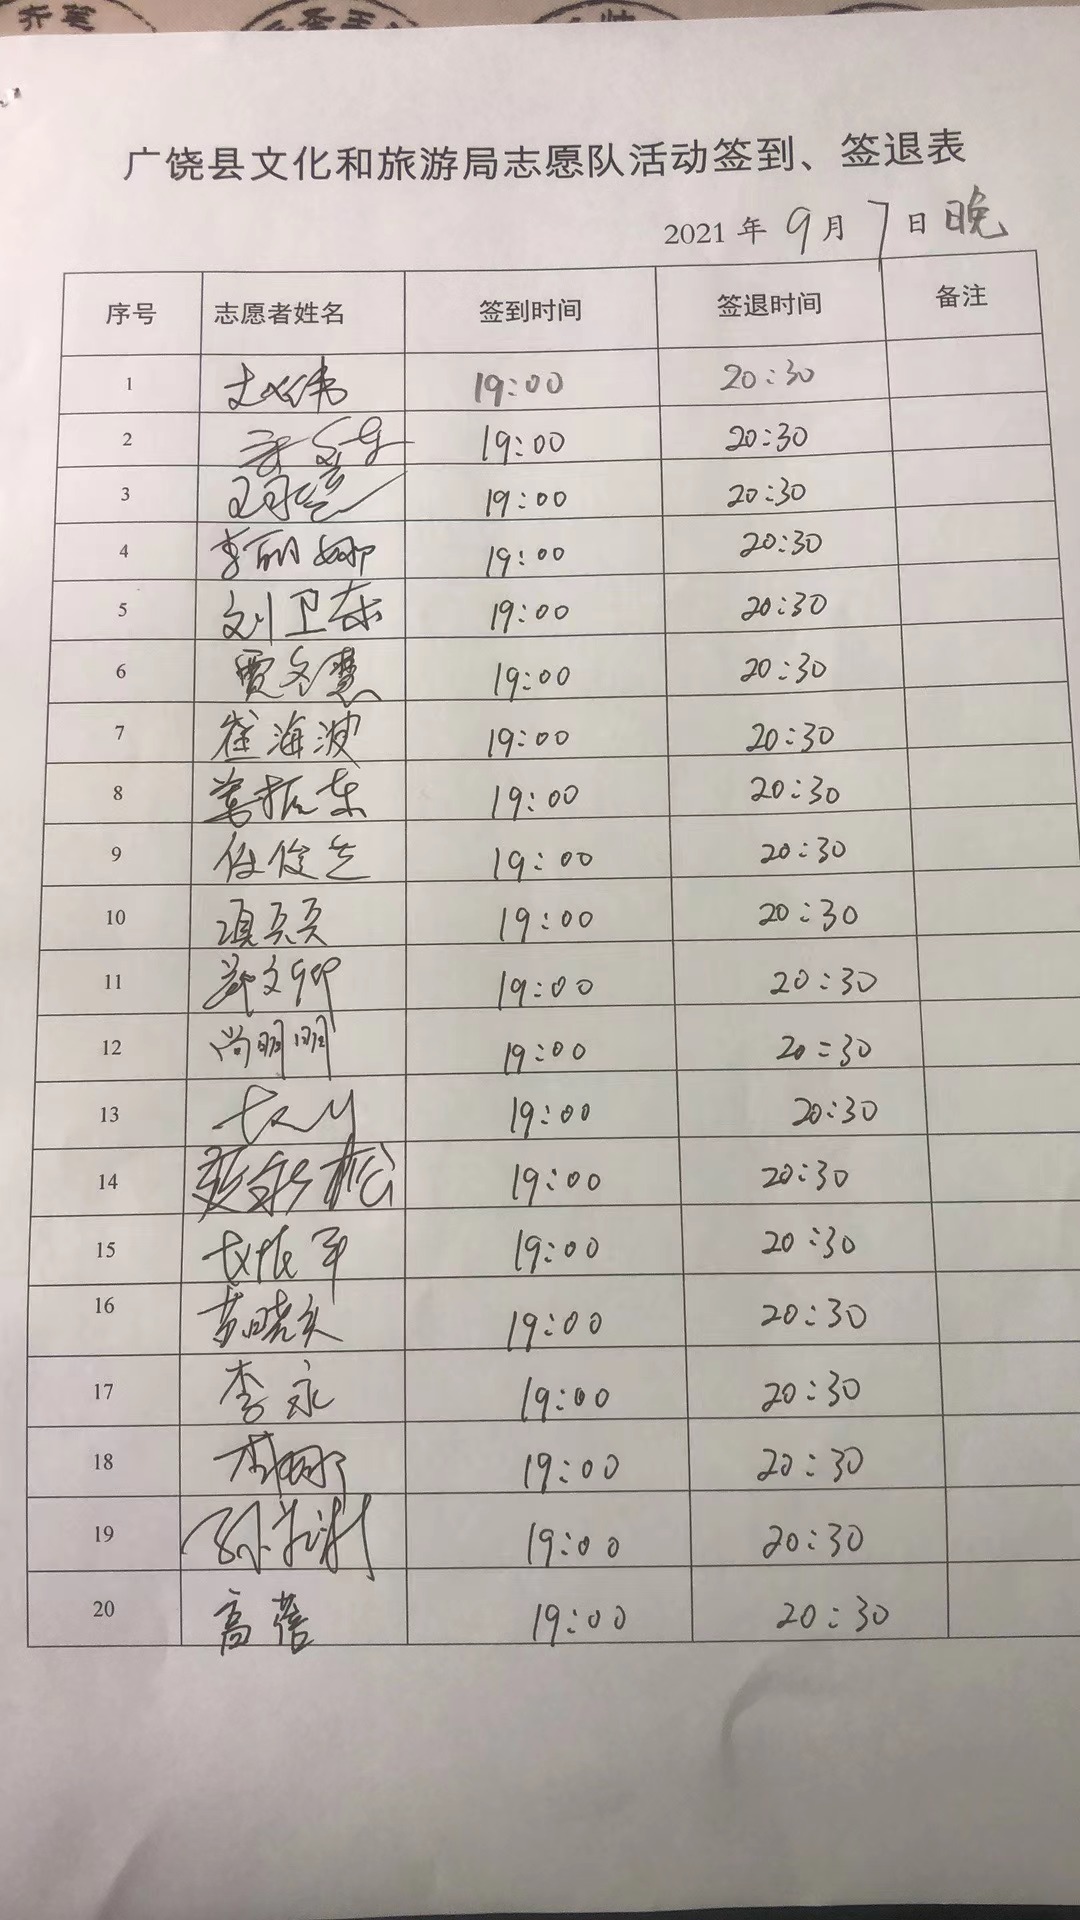 广饶县文化和旅游局志愿队活动签到、签退表
2021 年 9 月 7 日 晚
序号 志愿者姓名 签到时间 签退时间 备注
1 赵伟 19:00 20:30
2 19:00 20:30
3 19:00 20:30
4 李丽娜 19:00 20:30
5 刘卫东 19:00 20:30
6 贾冬慧 19:00 20:30
7 崔海波 19:00 20:30
8 姜振东 19:00 20:30
9 任俊芝 19:00 20:30
10 项页页 19:00 20:30
11 郑文卿 19:00 20:30
12 尚明明 19:00 20:30
13 19:00 20:30
14 聂永松 19:00 20:30
15 赵振军 19:00 20:30
16 19:00 20:30
17 李永 19:00 20:30
18 李娜 19:00 20:30
19 19:00 20:30
20 高蓓 19:00 20:30